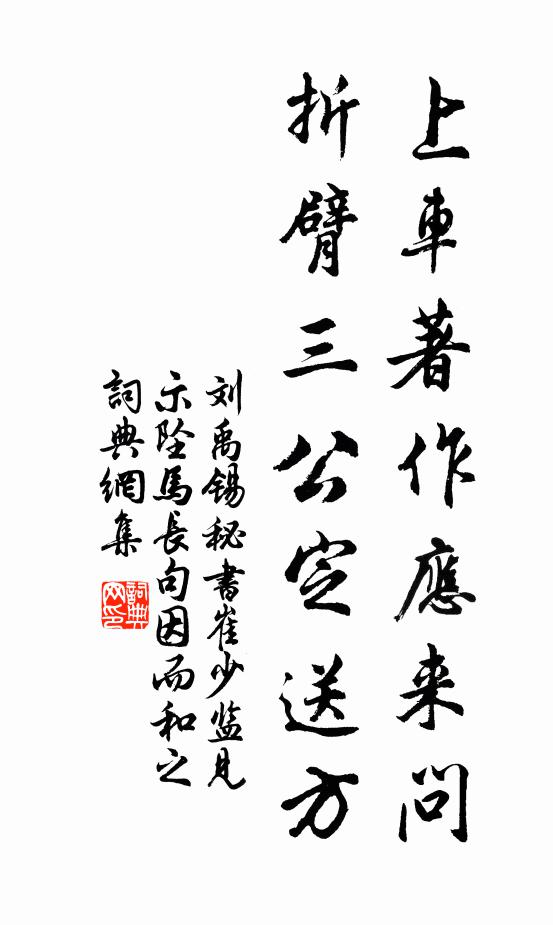 上車著作應来問
折臂三公定送方
刘禹锡秘書崔少监見
示坠馬長句因而和之
詞典網集
詞典
网印